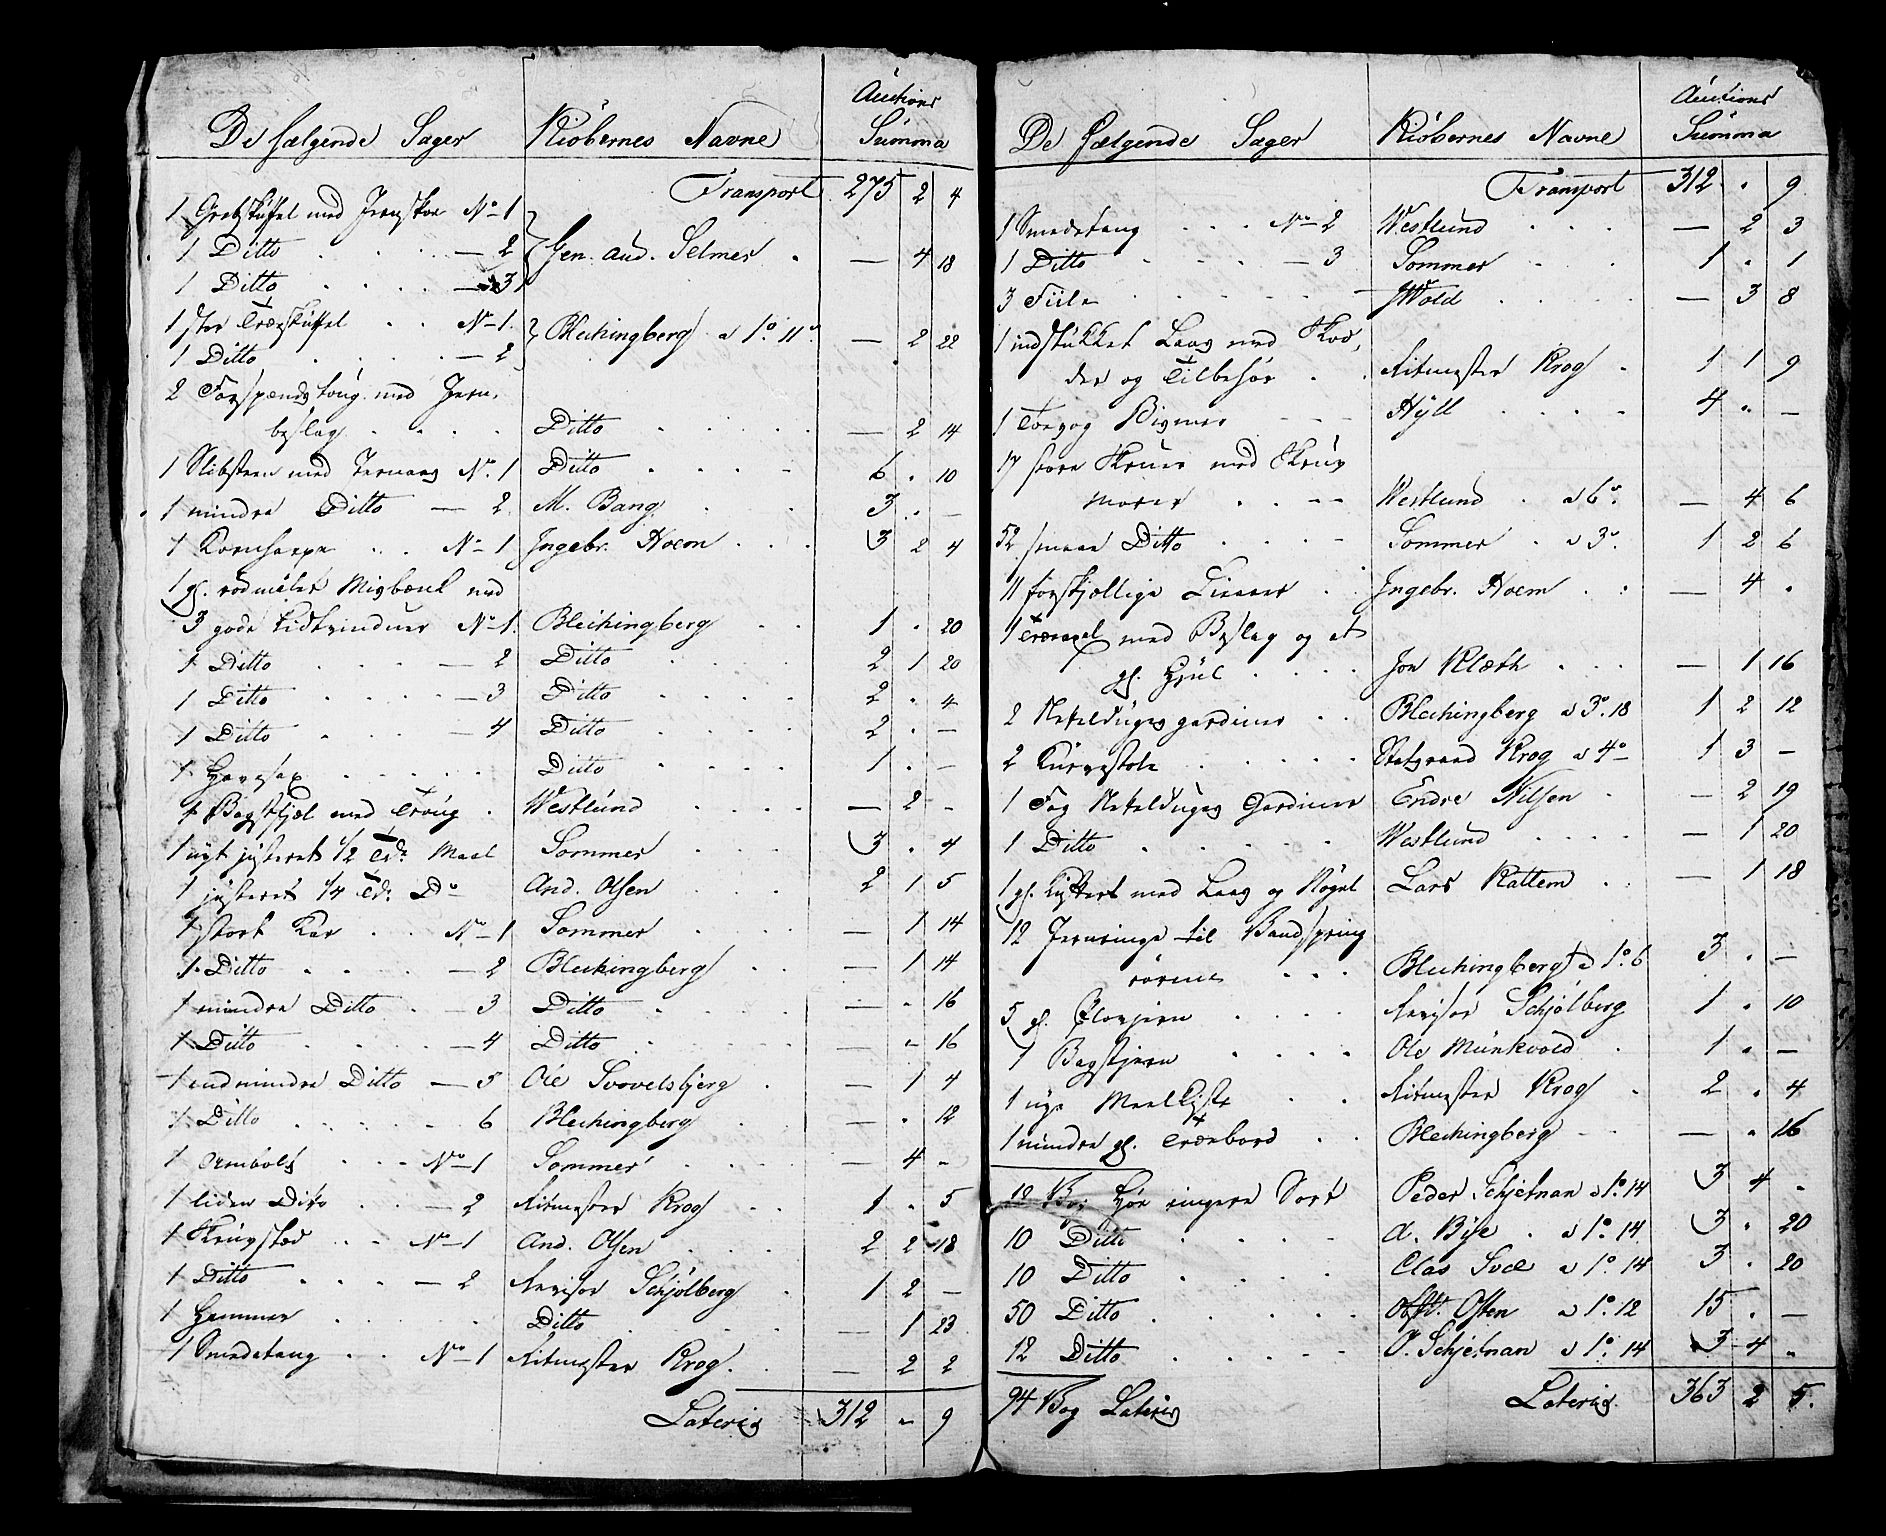 De følgende Sager Kiöbernes Navne Auctions Summa
Transport 275 2 4
1 Grebskuffel med Jernskoe No 1
1 Ditto — 2 Gen. aud. Selmer — 4 18
1 Ditto — 3
1 stor Træskuffel No 1
1 Ditto — 2 Blechingberg a 1o 11 — 2 22
2 Forspændstoug med Jern-
beslag Ditto — 2 14
1 Slibsteen med Jernaag No 1 Ditto 6 . 10
1 mindre Ditto — 2 M. Bang 3 . —
1 Kornharpe No 1 Ingebr. Hoem 3 2 4
1 gl. rødmalet med
3 gode No 1 Blechingberg 1 . 20
1 Ditto — 2 Ditto 2 1 20
1 Ditto — 3 Ditto 2 . 4
1 Ditto — 4 Ditto 2 . —
1 Havesax Ditto 1 . —
1 Bagstfjæl med Troug Westlund — 2 -
1 nyt justeret 1/2 Tde Maal Sommer 3 . 4
1 justeret 1/4 Td: Do And. Olsen 2 1 5
1 stort Kar No 1 Sommer — 1 14
1 Ditto — 2 Blechingberg — 1 14
1 mindre Ditto — 3 Ditto — . 16
1 Ditto — 4 Ditto — - 16
1 endmindre Ditto — 5 Ole Svovelsbjerg — 1 4
1 Ditto 6 Blechingberg — . 12
1 Armbolt No 1 Sommer — 4 -
1 liden Ditto — 2 Ritmester Krog 1 . 5
1 Skruestød No 1 And. Olsen 2 2 18
1 Ditto — 2 Revisor Schjølberg 1 2 —
1 Hammer Ditto — 1 23
1 Smedetang No 1 Ritmester Krog — 2 2
Lateris 312 - 9
De følgende Sager Kiöbernes Navne Auctions Summa
Transport 312 . 9
1 Smedetang No 2 Westlund — 2 3
1 Ditto — 3 Sommer 1 . 1
3 Fiile Wold — 3 8
1 indstukket Laas med Skod-
der og Tilbehør Ritmester Krog 1 1 9
1 Bismer Hyll 4 - —
17 store Skruer med Skrue
moer Westlund a 6 — 4 6
52 smaae Ditto Sommer a 3 1 2 6
11 forskjellige Ingebr. Hoem — 4 .
1 Træaxel med Beslag og et
gl. Hjul Jon Klæth — 1 16
2 Netteldugs gardiner Blechingberg a 3o 18 1 2 12
2 Kurvestole Statsraad Krog a 4o 1 3 —
1 Fag Netteldugs Gardiner Endre Nilsen — 2 19
1 Ditto Westlund — 1 20
1 gl. med Laas og Nøgel Lars Rattem — 1 18
12 Jernringe til Vandspring
rørene Blechingberg a 1o 6 3 . —
5 gl. Plovjern Revisor Schjølberg 1 . 10
1 Bagstjern Ole Munkvold 1 . —
1 nye Meelkiste Ritmester Krog 2 . 4
1 mindre gl. Træebord Blechingberg — . 16
12 Bog Hør ringere Sort Peder Schjetnan a 1o 14 3 4 .
10 Ditto A. Bye a 1o 14 3 . 20
10 Ditto Clas Svee a 1o 14 3 . 20
50 Ditto Olsen a 1o 12 15 . —
12 Ditto P. Schjetnan a 1o 14 3 4 .
94 Bog Lateris Lateris 363 2 5.